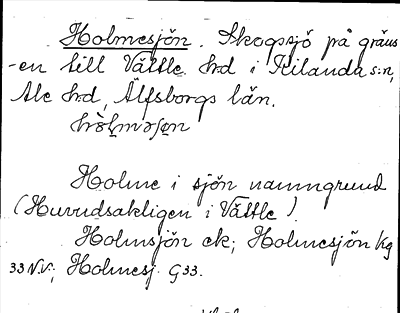 Holmesjön. Skogssjö på gräns
-en till Vättle hd i Kilanda sn,
Ale hd, Älfsborgs län.

Holme i sjön namngrund
(Huvudsakligen i Vättle).
Holmsjön ek; Holmesjön hg
33 N.V.; Holmesj. G33.